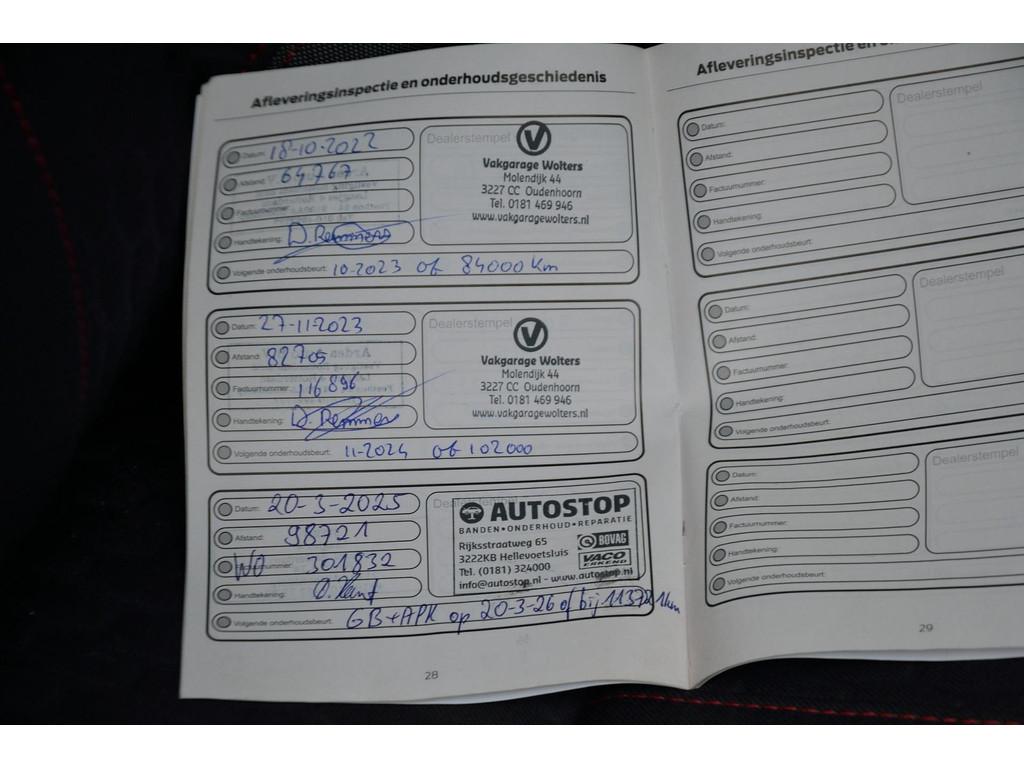 Afleveringsinspectie en onderhoudsgeschiedenis
Datum: 18-10-2022
Afstand: 64767
Factuurnummer:
Handtekening: D. Remmers
Volgende onderhoudsbeurt: 10-2023 of 84000 Km
Dealerstempel
V
Vakgarage Wolters
Molendijk 44
3227 CC Oudenhoorn
Tel. 0181 469 946
www.vakgaragewolters.nl
Datum: 27-11-2023
Afstand: 82705
Factuurnummer: 116896
Handtekening: D. Remmers
Volgende onderhoudsbeurt: 11-2024 of 102000
Dealerstempel
V
Vakgarage Wolters
Molendijk 44
3227 CC Oudenhoorn
Tel. 0181 469 946
www.vakgaragewolters.nl
Datum: 20-3-2025
Afstand: 98721
WO nummer: 301832
Handtekening:
Volgende onderhoudsbeurt: GB + APK op 20-3-26 of bij 113721km
Dealerstempel
AUTOSTOP
BANDEN•ONDERHOUD•REPARATIE
Rijksstraatweg 65
3222KB Hellevoetsluis
Tel. (0181) 324000
info@autostop.nl - www.autostop.nl
BOVAG
VACO
ERKEND
28
Afleveringsinspectie en
Datum:
Afstand:
Factuurnummer:
Handtekening:
Volgende onderhoudsbeurt:
Dealerstempel
Datum:
Afstand:
Factuurnummer:
Handtekening:
Volgende onderhoudsbeurt:
Dealerstempel
Datum:
Afstand:
Factuurnummer:
Handtekening:
Volgende onderhoudsbeurt:
Dealerstempel
29